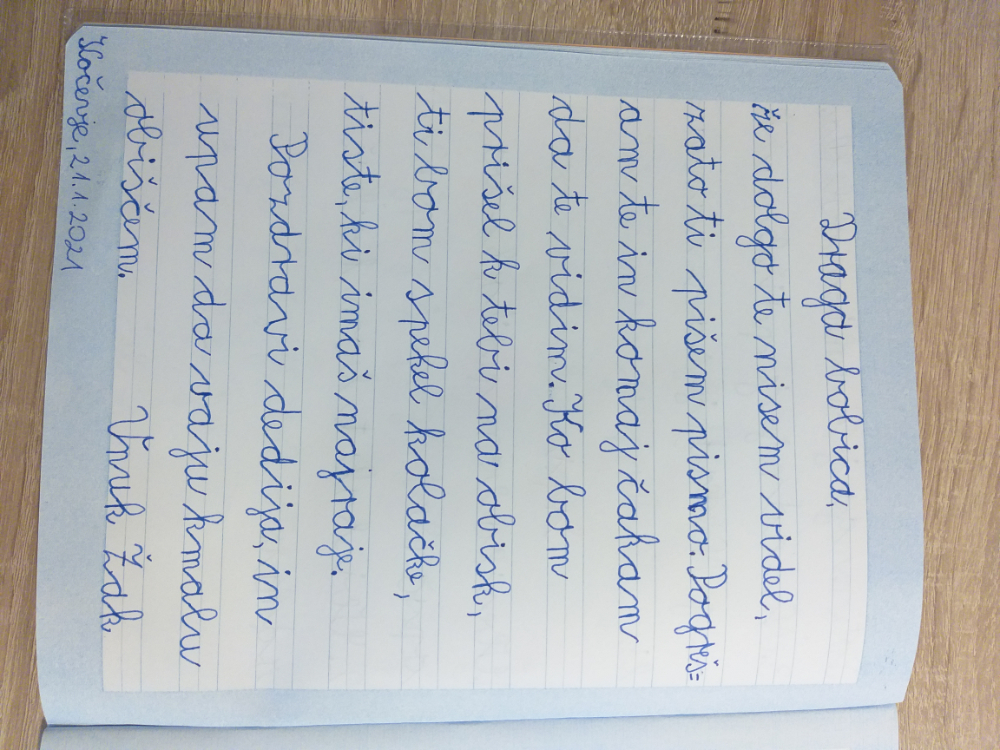 Draga bobica,
že dolgo te nisem videl,
zato ti pišem pismo. Pogreš=
am te in komaj čakam
da te vidim. Ko bom
prišel k tebi na obisk,
ti bom spekel kolačke,
tiste, ki imaš najraje.
Pozdravi dedija, in
upam da vaju kmalu
obiščem. Vnuk Žak
Kočevje, 21.1.2021